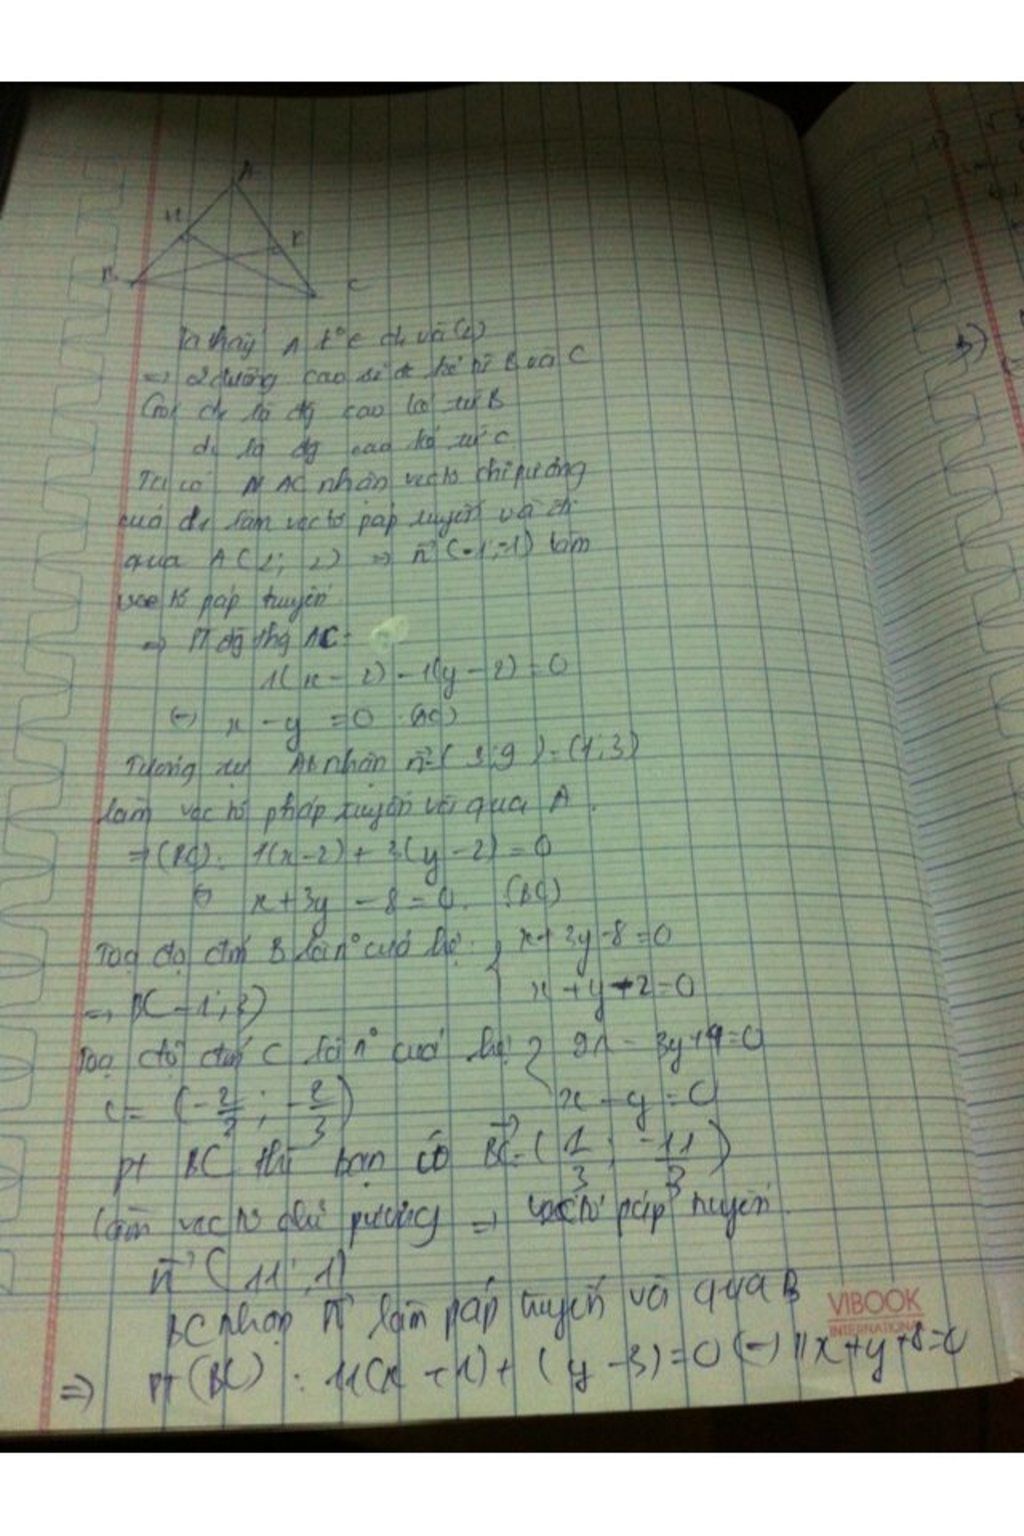 A
H K
B C
Ta thấy A t°c d1 và (2)
=> 2 đường cao sẽ đc kẻ từ B và C
Gọi d1 là đg cao kẻ từ B
d2 là đg cao kẻ từ C
Ta có AC nhận vectơ chỉ pương
của d1 làm vectơ páp tuyến và đi
qua A(2; 2) => n→(-1;-1) làm
vectơ páp tuyến
=> PT đg thg AC:
1(x-2)-1(y-2)=0
(-) x-y=0 (AC)
Tương tự AB nhận n→=(3;9)=(1;3)
làm vectơ pháp tuyến và qua A.
=>(BC): 1(x-2)+3(y-2)=0
x+3y-8=0. (BC)
Toạ độ điểm B là n° của hệ: { x+3y-8=0
=> B(-1;3) x+y+2=0
Toạ độ điểm C là n° của hệ { 9x-3y+4=0
C=(-2/3; -2/3) x-y=0
pt BC thì bạn có BC→=(1/3; -11/3)
làm vectơ chỉ pương => vectơ páp tuyến
n→(11;1)
BC nhận n→ làm páp tuyến và qua B
VIBOOK
INTERNATIONAL
=> PT(BC): 11(x+1)+(y-3)=0 (-) 11x+y+8=0
b)